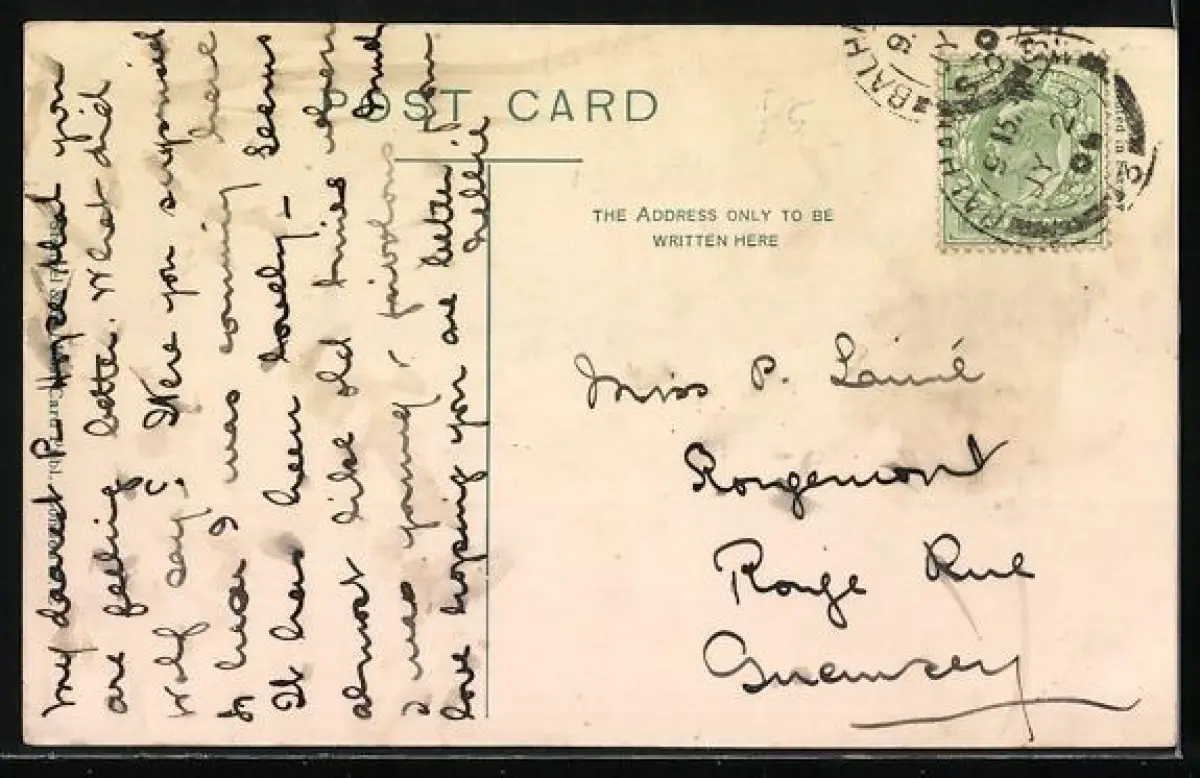 POST CARD
THE ADDRESS ONLY TO BE
WRITTEN HERE
My dearest P. Hope that you
are feeling better. What did
Wolf say? Were you surprised
to hear I was coming here
It has been lovely - seems
almost like old times when
I was young! Fond
love hoping you are better from
Nellie
BALHAM
BALHAM S.O
5 15
JY 20
Miss P. Lainé
Rougemont
Rouge Rue
Guernsey